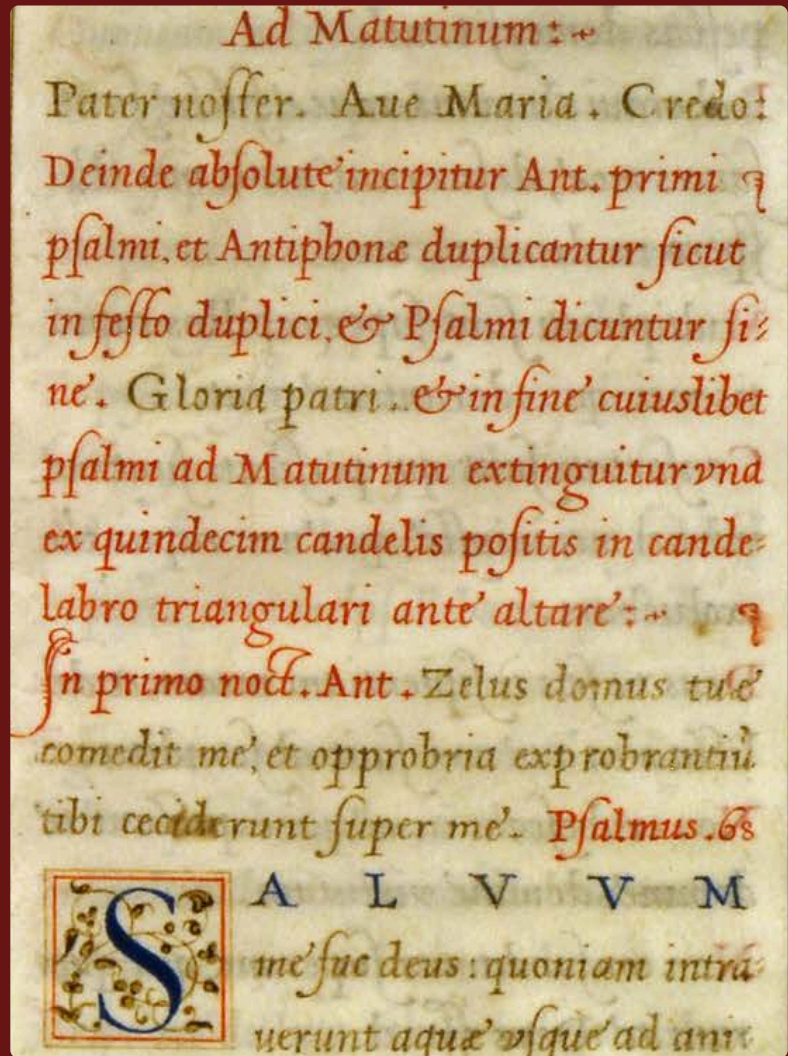 Ad Matutinum:~
Pater noſter. Aue Maria. Credo:
Deinde abſolute incipitur Ant. primi
pſalmi, et Antiphonæ duplicantur ſicut
in feſto duplici, & Pſalmi dicuntur ſi-
ne. Gloria patri. & in fine cuiuslibet
pſalmi ad Matutinum extinguitur vna
ex quindecim candelis poſitis in cande-
labro triangulari ante altare:~
In primo noct. Ant. Zelus domus tuæ
comedit me, et opprobria exprobrantiũ
tibi ceciderunt ſuper me. Pſalmus .68
SALVVM
me fac deus: quoniam intra-
uerunt aquæ vſque ad ani-